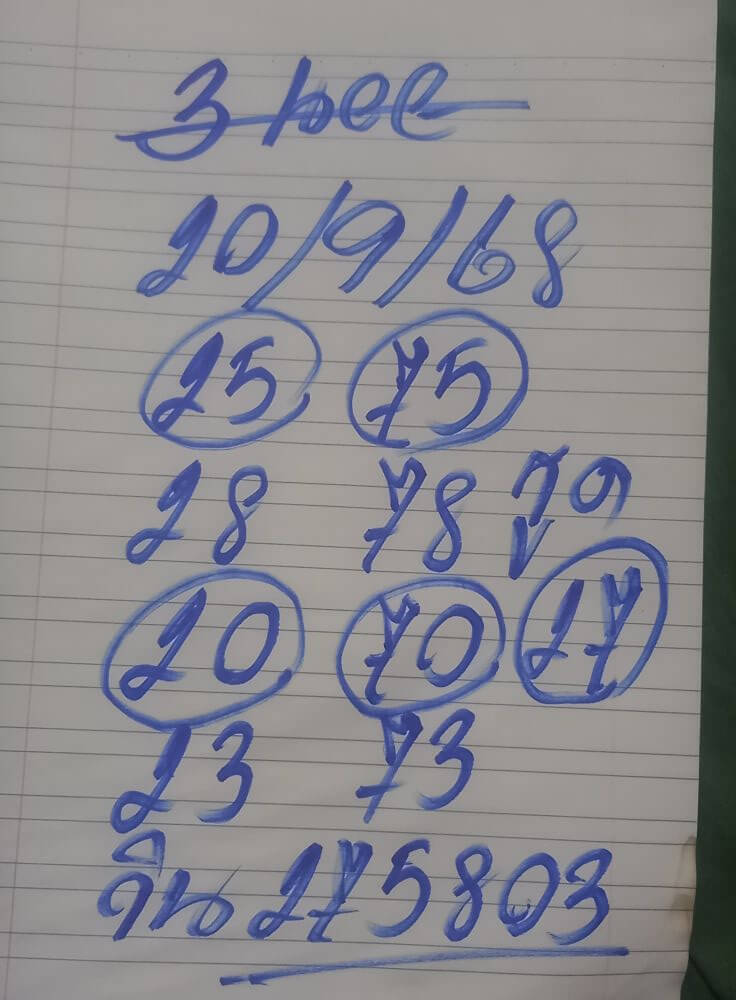 3
20/9/68
25 75
28 78 รูด
20 70 27
23 73
วิน 275803